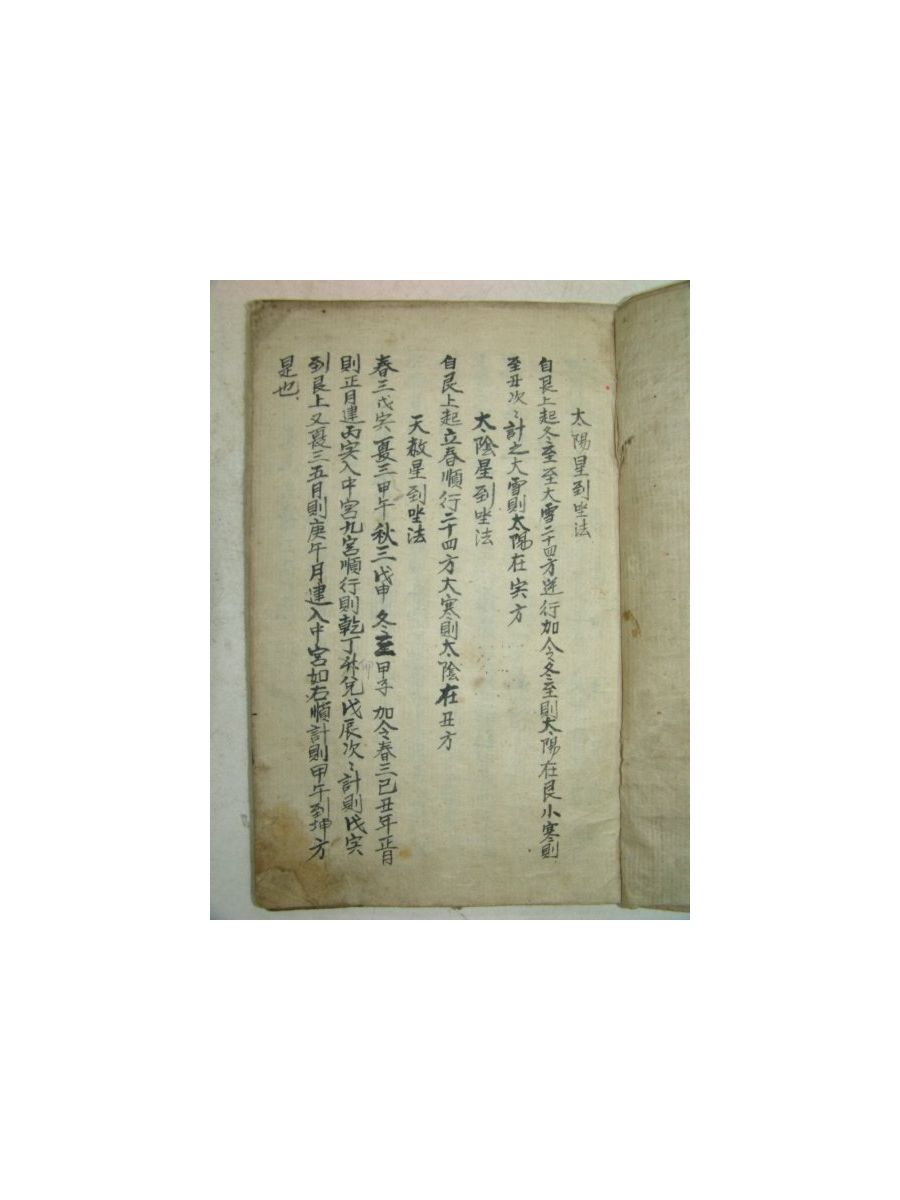 太陽星到坐法
自艮上起冬至至大雪二十四方逆行加令冬至則太陽在艮小寒則
至丑次〻計之大雪則太陽在寅方
太陰星到坐法
自艮上起立春順行二十四方大寒則太陰在丑方
天赦星到坐法
春三戊寅夏三甲午秋三戊申冬三甲子加令春三己丑年正月
則正月建丙寅入中宮九宮順行則乾丁卯兌戊辰次〻計則戊寅
到艮上又夏三五月則庚午月建入中宮如右順計則甲午到坤方
是也